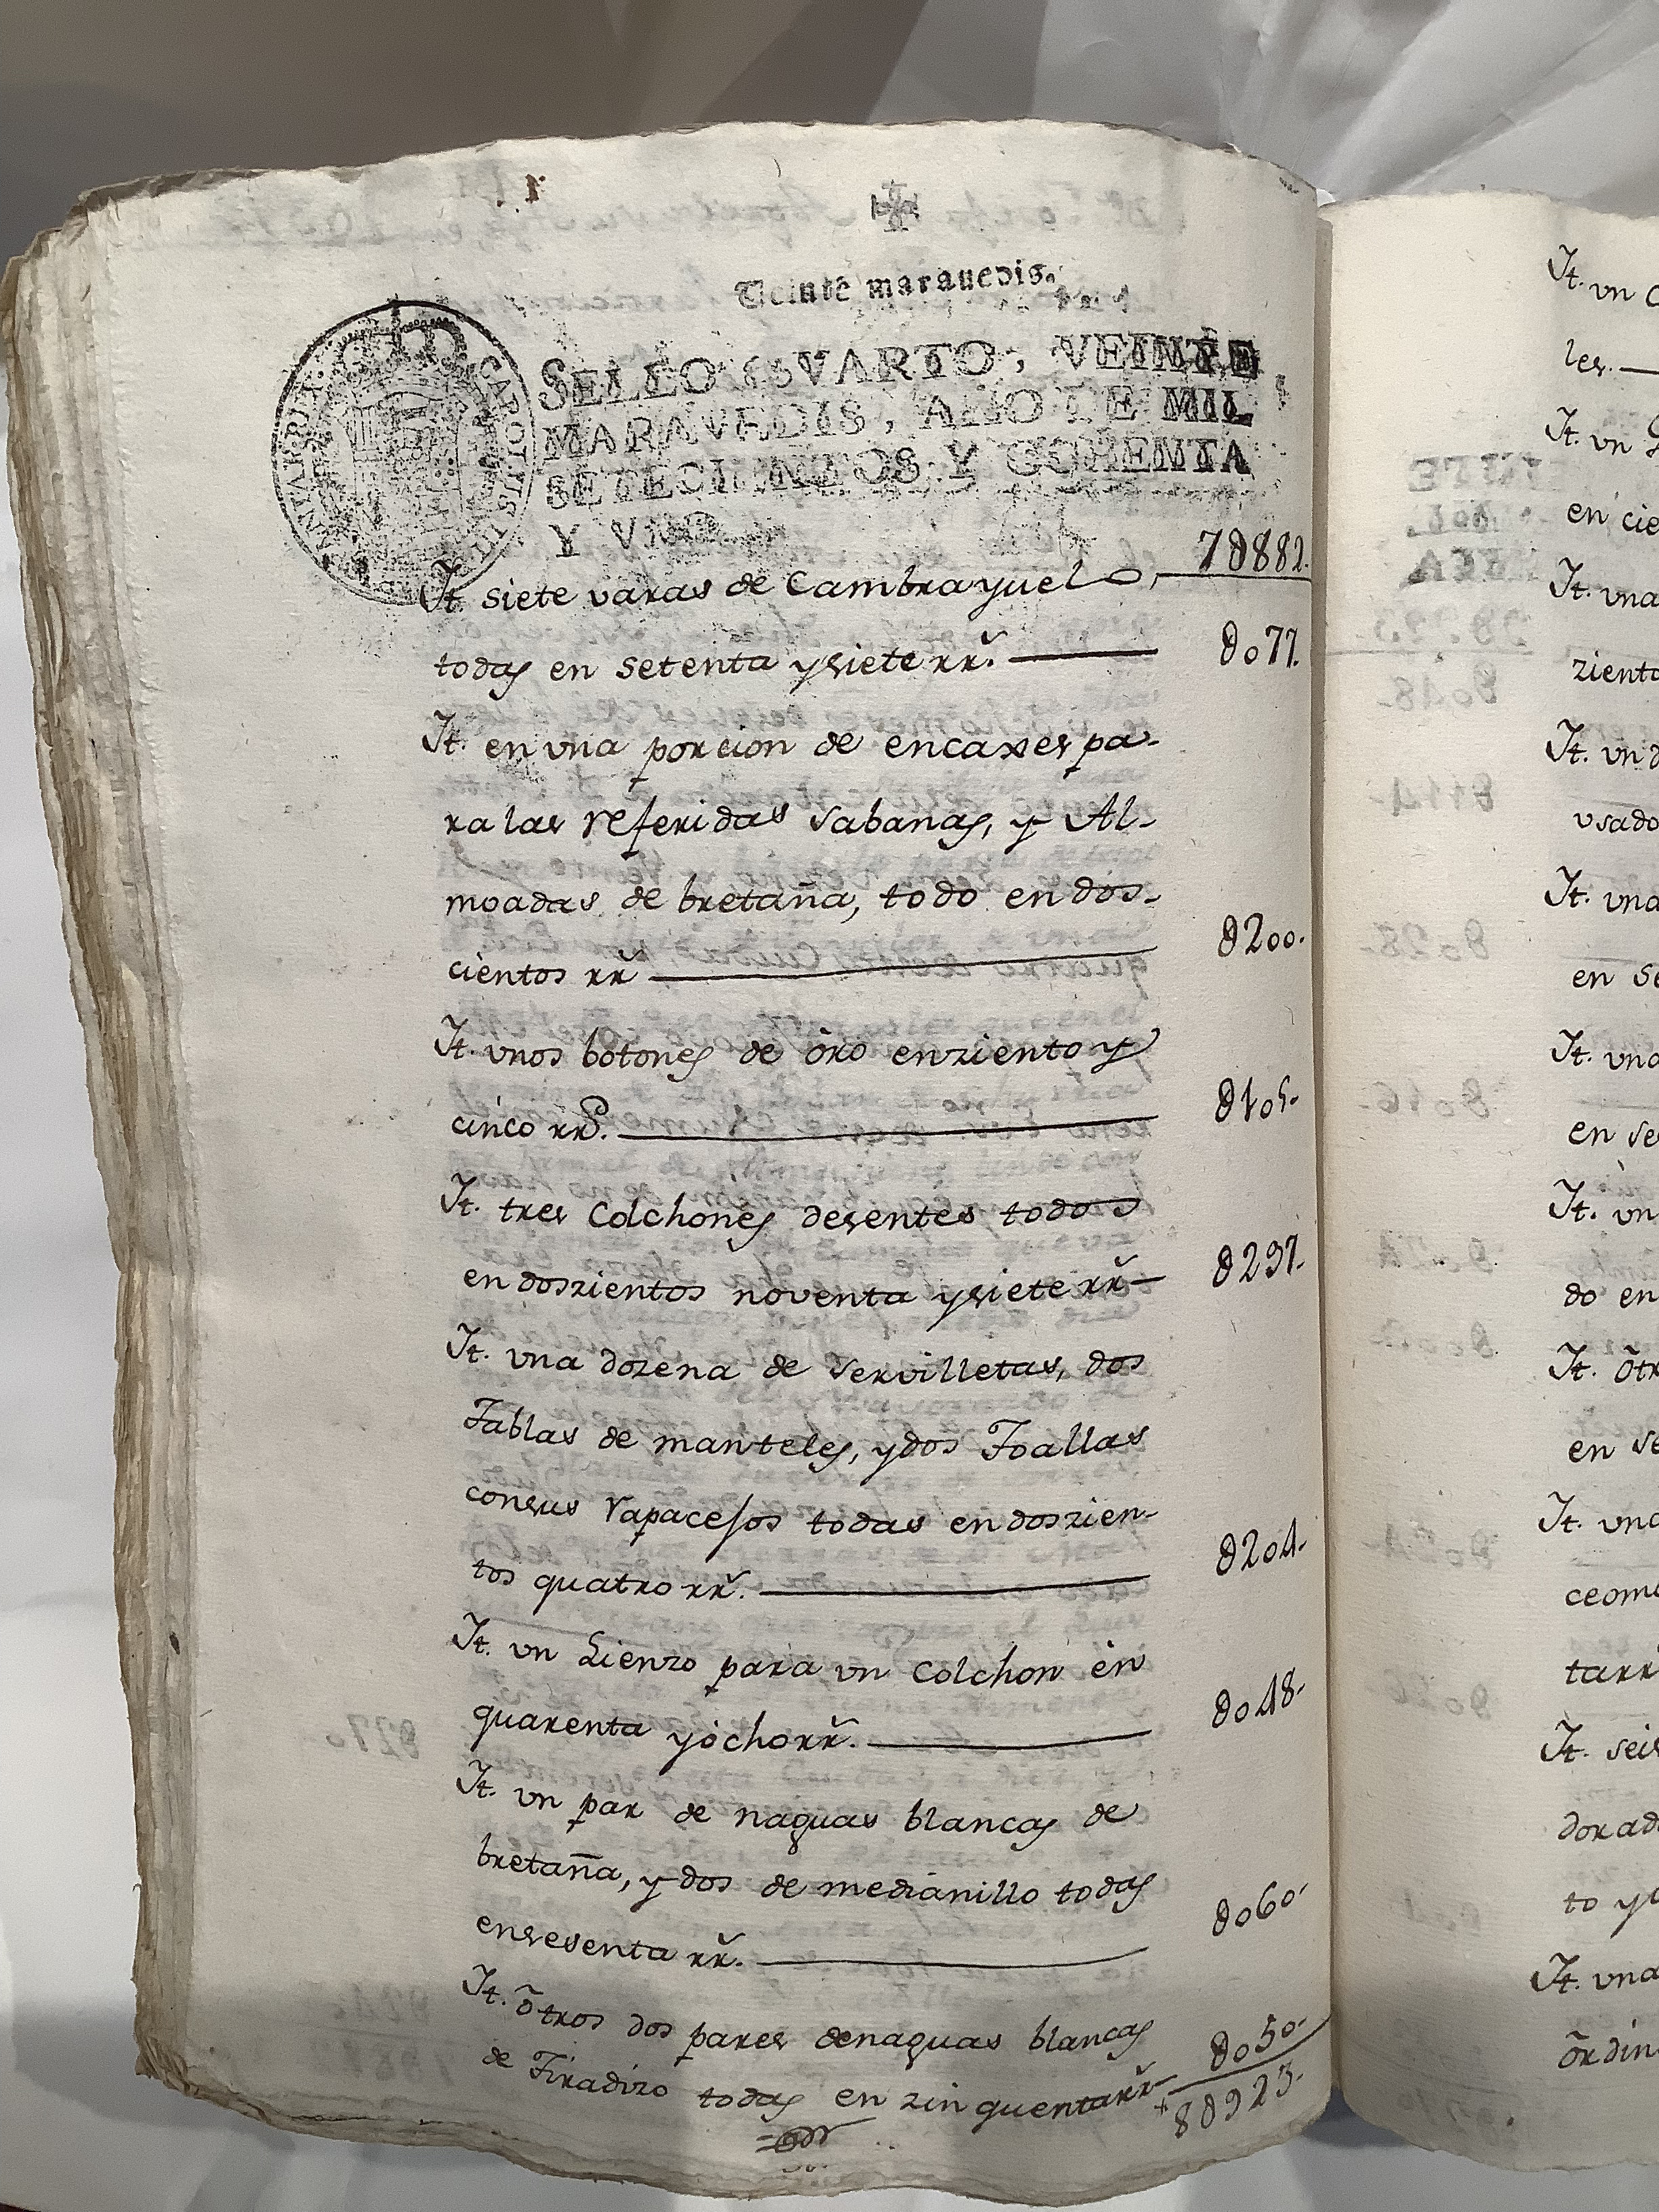 Veinte maravedis.
SELLO QVARTO, VEINTE
MARAVEDIS, AÑO DE MIL
SETECIENTOS Y QORENTA
Y VNO
7∂882.
It. siete varas de Cambrayuelo,
todas en setenta y siete rr.^s ∂077.
It. en vna porcion de encaxes pa-
ra las referidas sabanas, y Al-
moadas de bretaña, todo en dos-
cientos rr^s ∂200.
It. vnos botones de oro en ziento y
cinco rr^s. ∂105.
It. tres Colchones desentes todos
en doszientos noventa y siete rr^s ∂297.
It. vna dozena de servilletas, dos
Tablas de manteles, y dos Toallas
con sus rapacesos todas en doszien-
tos quatro rr^s. ∂204.
It. vn Lienzo para vn Colchon en
quarenta y ocho rr^s. ∂048.
It. vn par de naguas blancas de
bretaña, y dos de medianillo todas
en sesenta rr^s. ∂060.
It. otros dos pares de naguas blancas
de Tiradizo todas en zinquenta rr^s ∂050.
8∂923.
It. vn
les.
It. vn
en cie
It. vna
ziento
It. vn
vsado
It. vna
en se
It. vna
en se
It. vn
do en
It. otr
en se
It. vna
ceom
tarr
It. seis
dorad
to y
It. vna
ordin